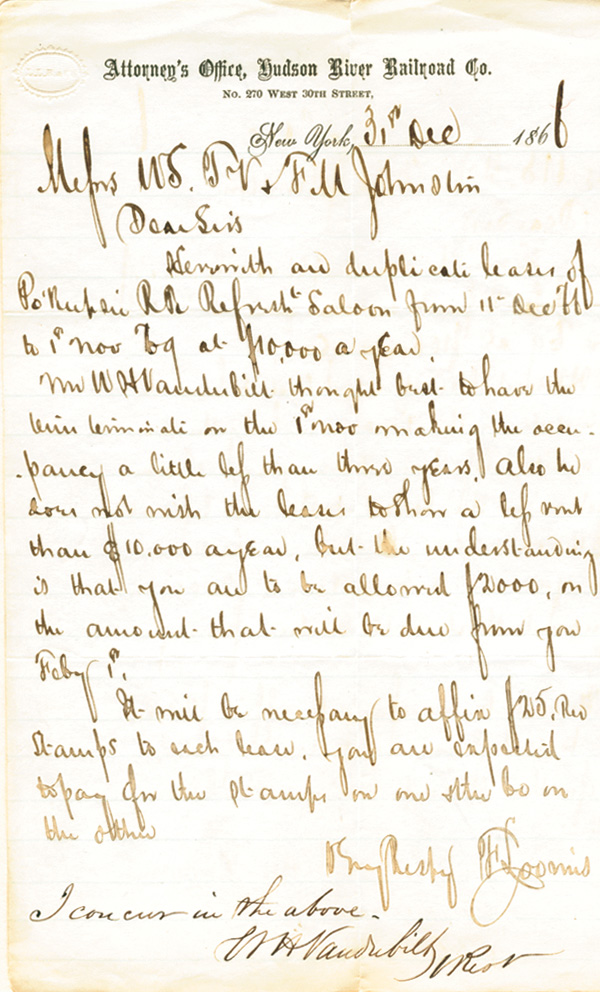 Attorney's Office, Hudson River Railroad Co.
No. 270 West 30th Street,
New York, 31st Dec 1866
Messrs WS. T V & F M Johnston
Dear Sirs
Herewith are duplicate leases of
Po'Keepsie RR Refresht Saloon from 1st Dec 66
to 1st Nov 69 at $10,000 a year.
Mr W H Vanderbilt thought best to have the
term terminate on the 1st Nov making the occu-
-pancy a little less than three years. Also he
does not wish the leases to show a less rent
than $10.000 a year, but the understanding
is that you are to be allowed $2000, on
the amount that will be due from you
Feby 1st.
It will be necessary to affix $25, Rev
Stamps to each lease. You are expected
to pay for the stamps on one & the Co on
the other
Very Respy F Loomis
I concur in the above -
W H Vanderbilt